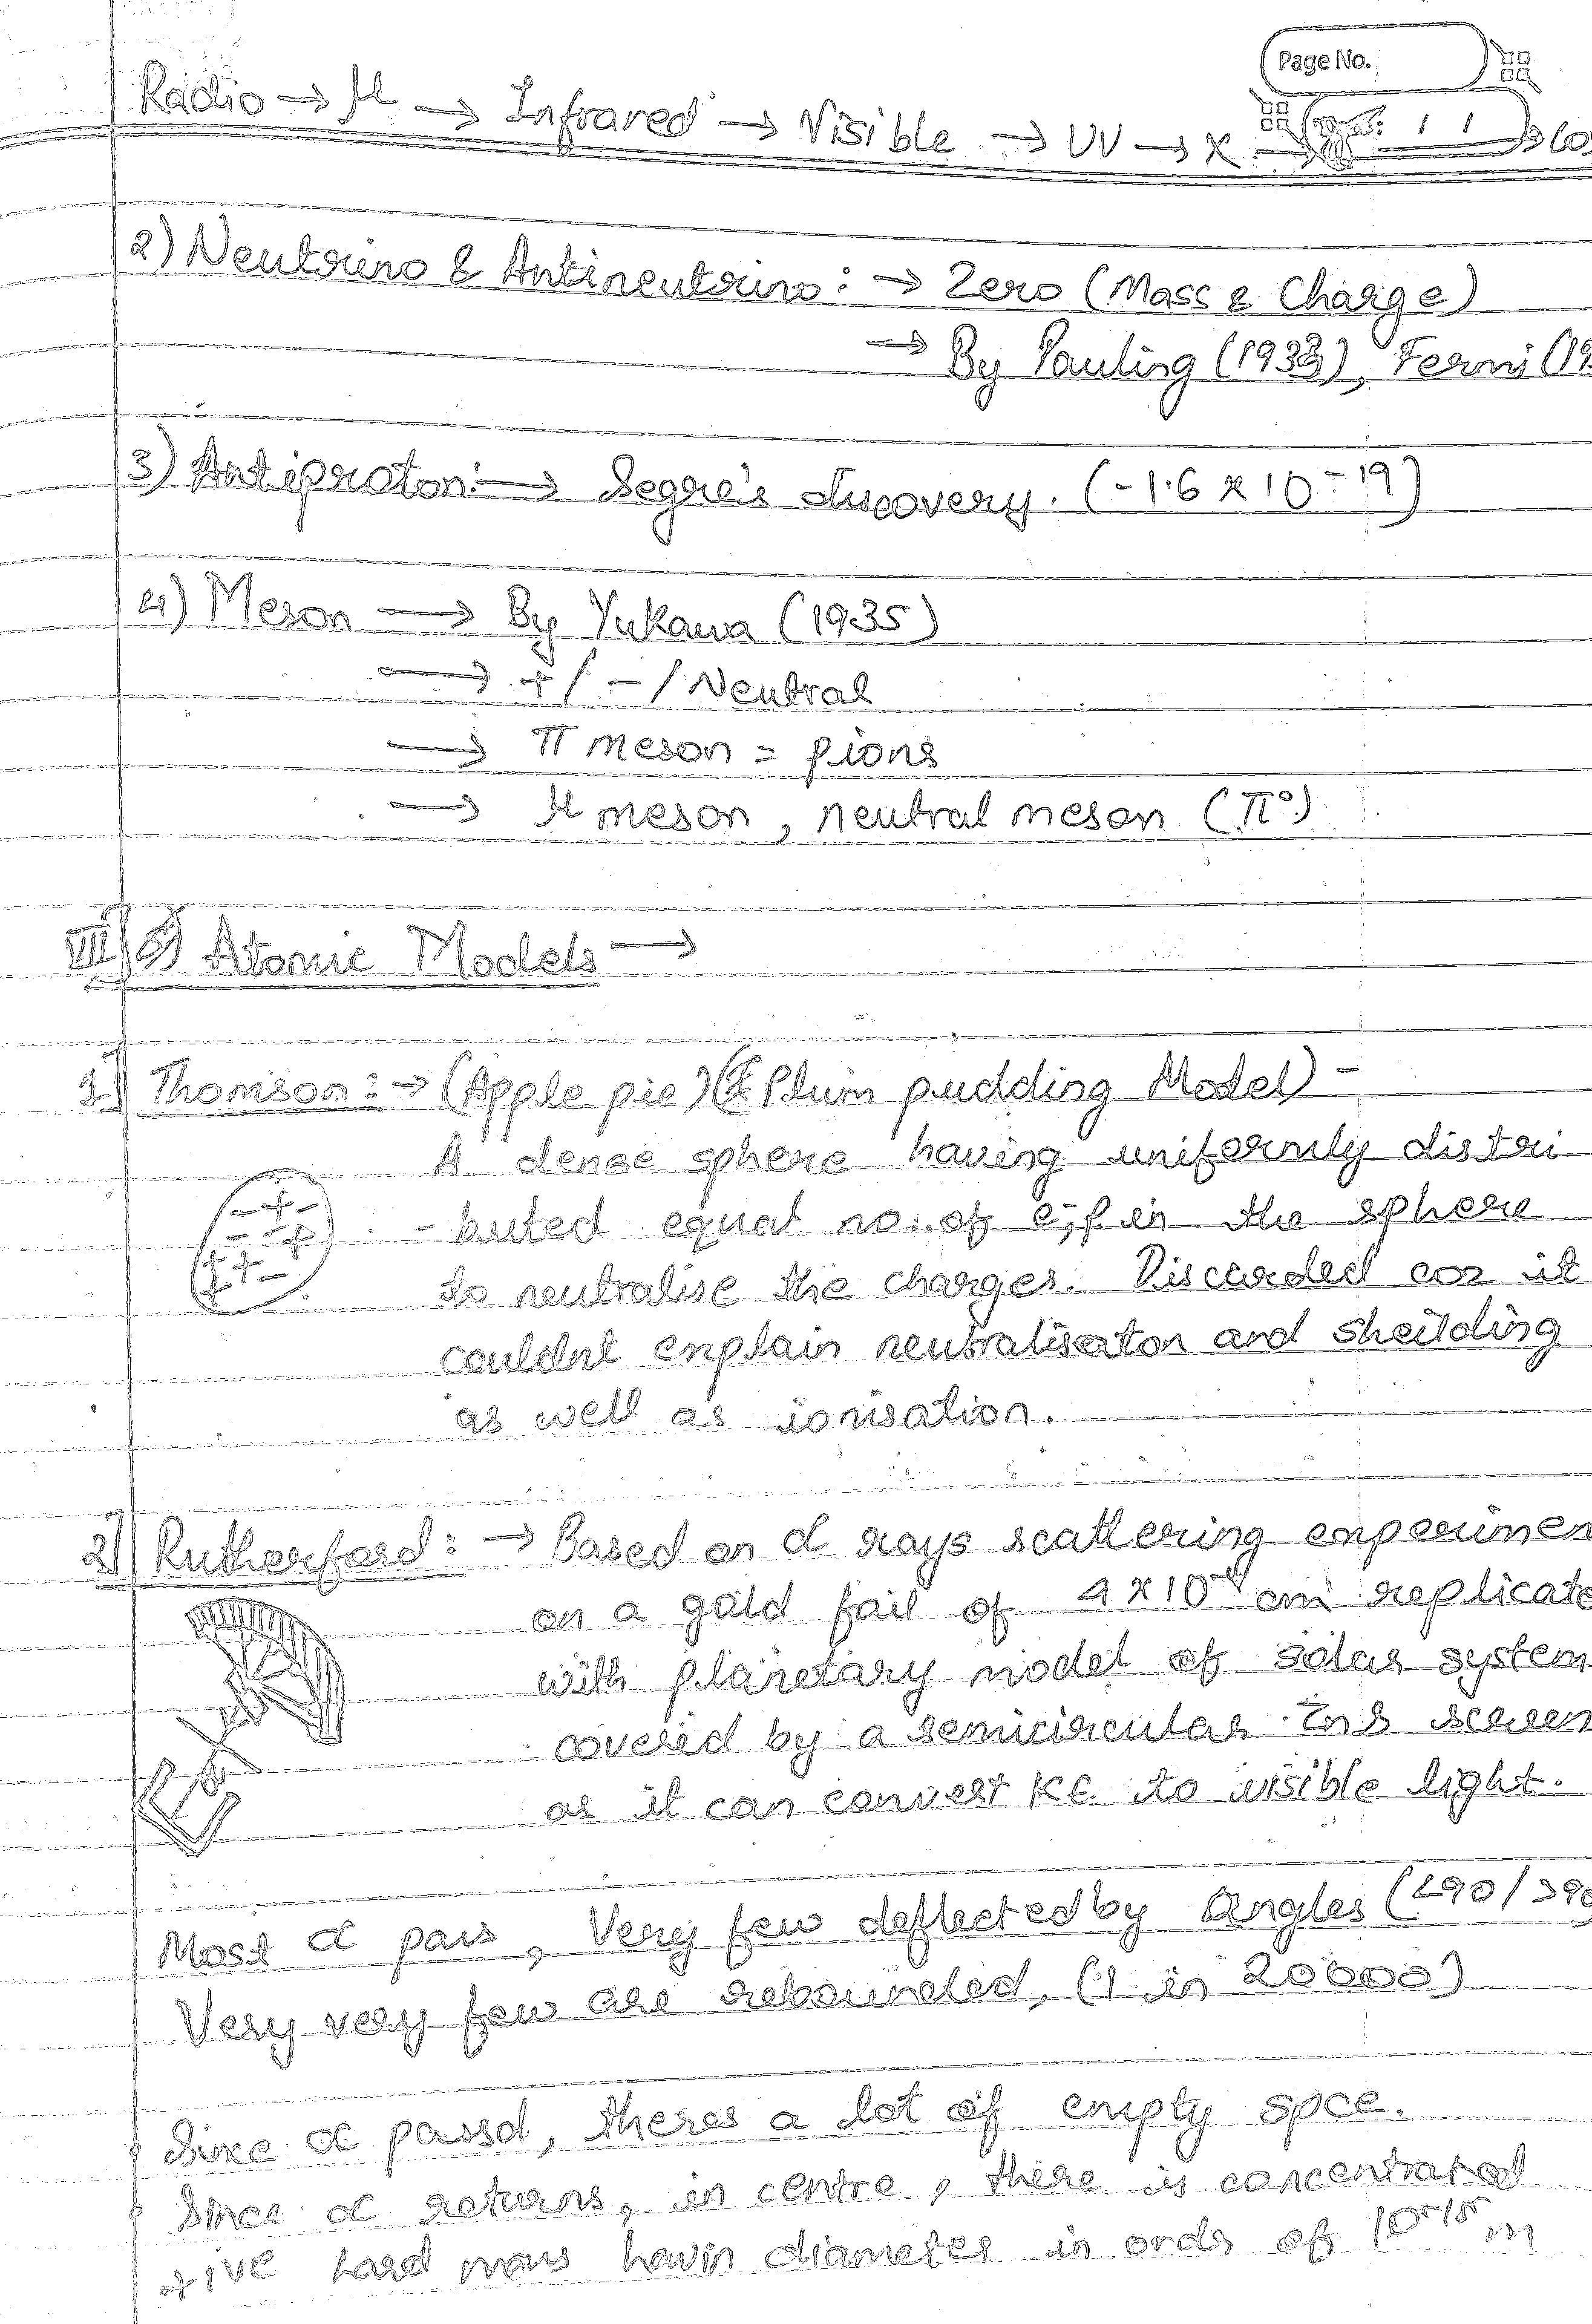 Page No.
Radio → μ → Infrared → Visible → UV → X →
2) Neutrino & Antineutrino: → Zero (Mass & Charge)
→ By Pauling (1933), Fermi (19
3) Antiproton: → Segre's discovery. (-1.6 x 10⁻¹⁹)
4) Meson → By Yukawa (1935)
→ + / - / Neutral
→ π meson = pions
→ μ meson, neutral meson (π°)
VII) Atomic Models →
1) Thomson: → (Apple pie) (Plum pudding Model) -
A dense sphere having uniformly distri
- + -
- buted equal no. of e⁻, p in the sphere
- - +
to neutralise the charges. Discarded coz it
+ + -
+ -
couldnt explain neutralisaton and sheilding
as well as ionisation.
2) Rutherford: → Based on α rays scattering experimen
on a gold foil of 4 x 10⁻⁴ cm replicate
with planetary model of solar system
covered by a semicircular ZnS screen
as it can convert KE to visible light.
Most α pass, Very few deflected by Angles (<90/>90
Very very few are rebounded, (1 in 20000)
Since α passd, theres a lot of empty spce.
Since α returns, in centre, there is concentrated
+ive hard mass havin diameter in ordr of 10⁻¹⁵ m